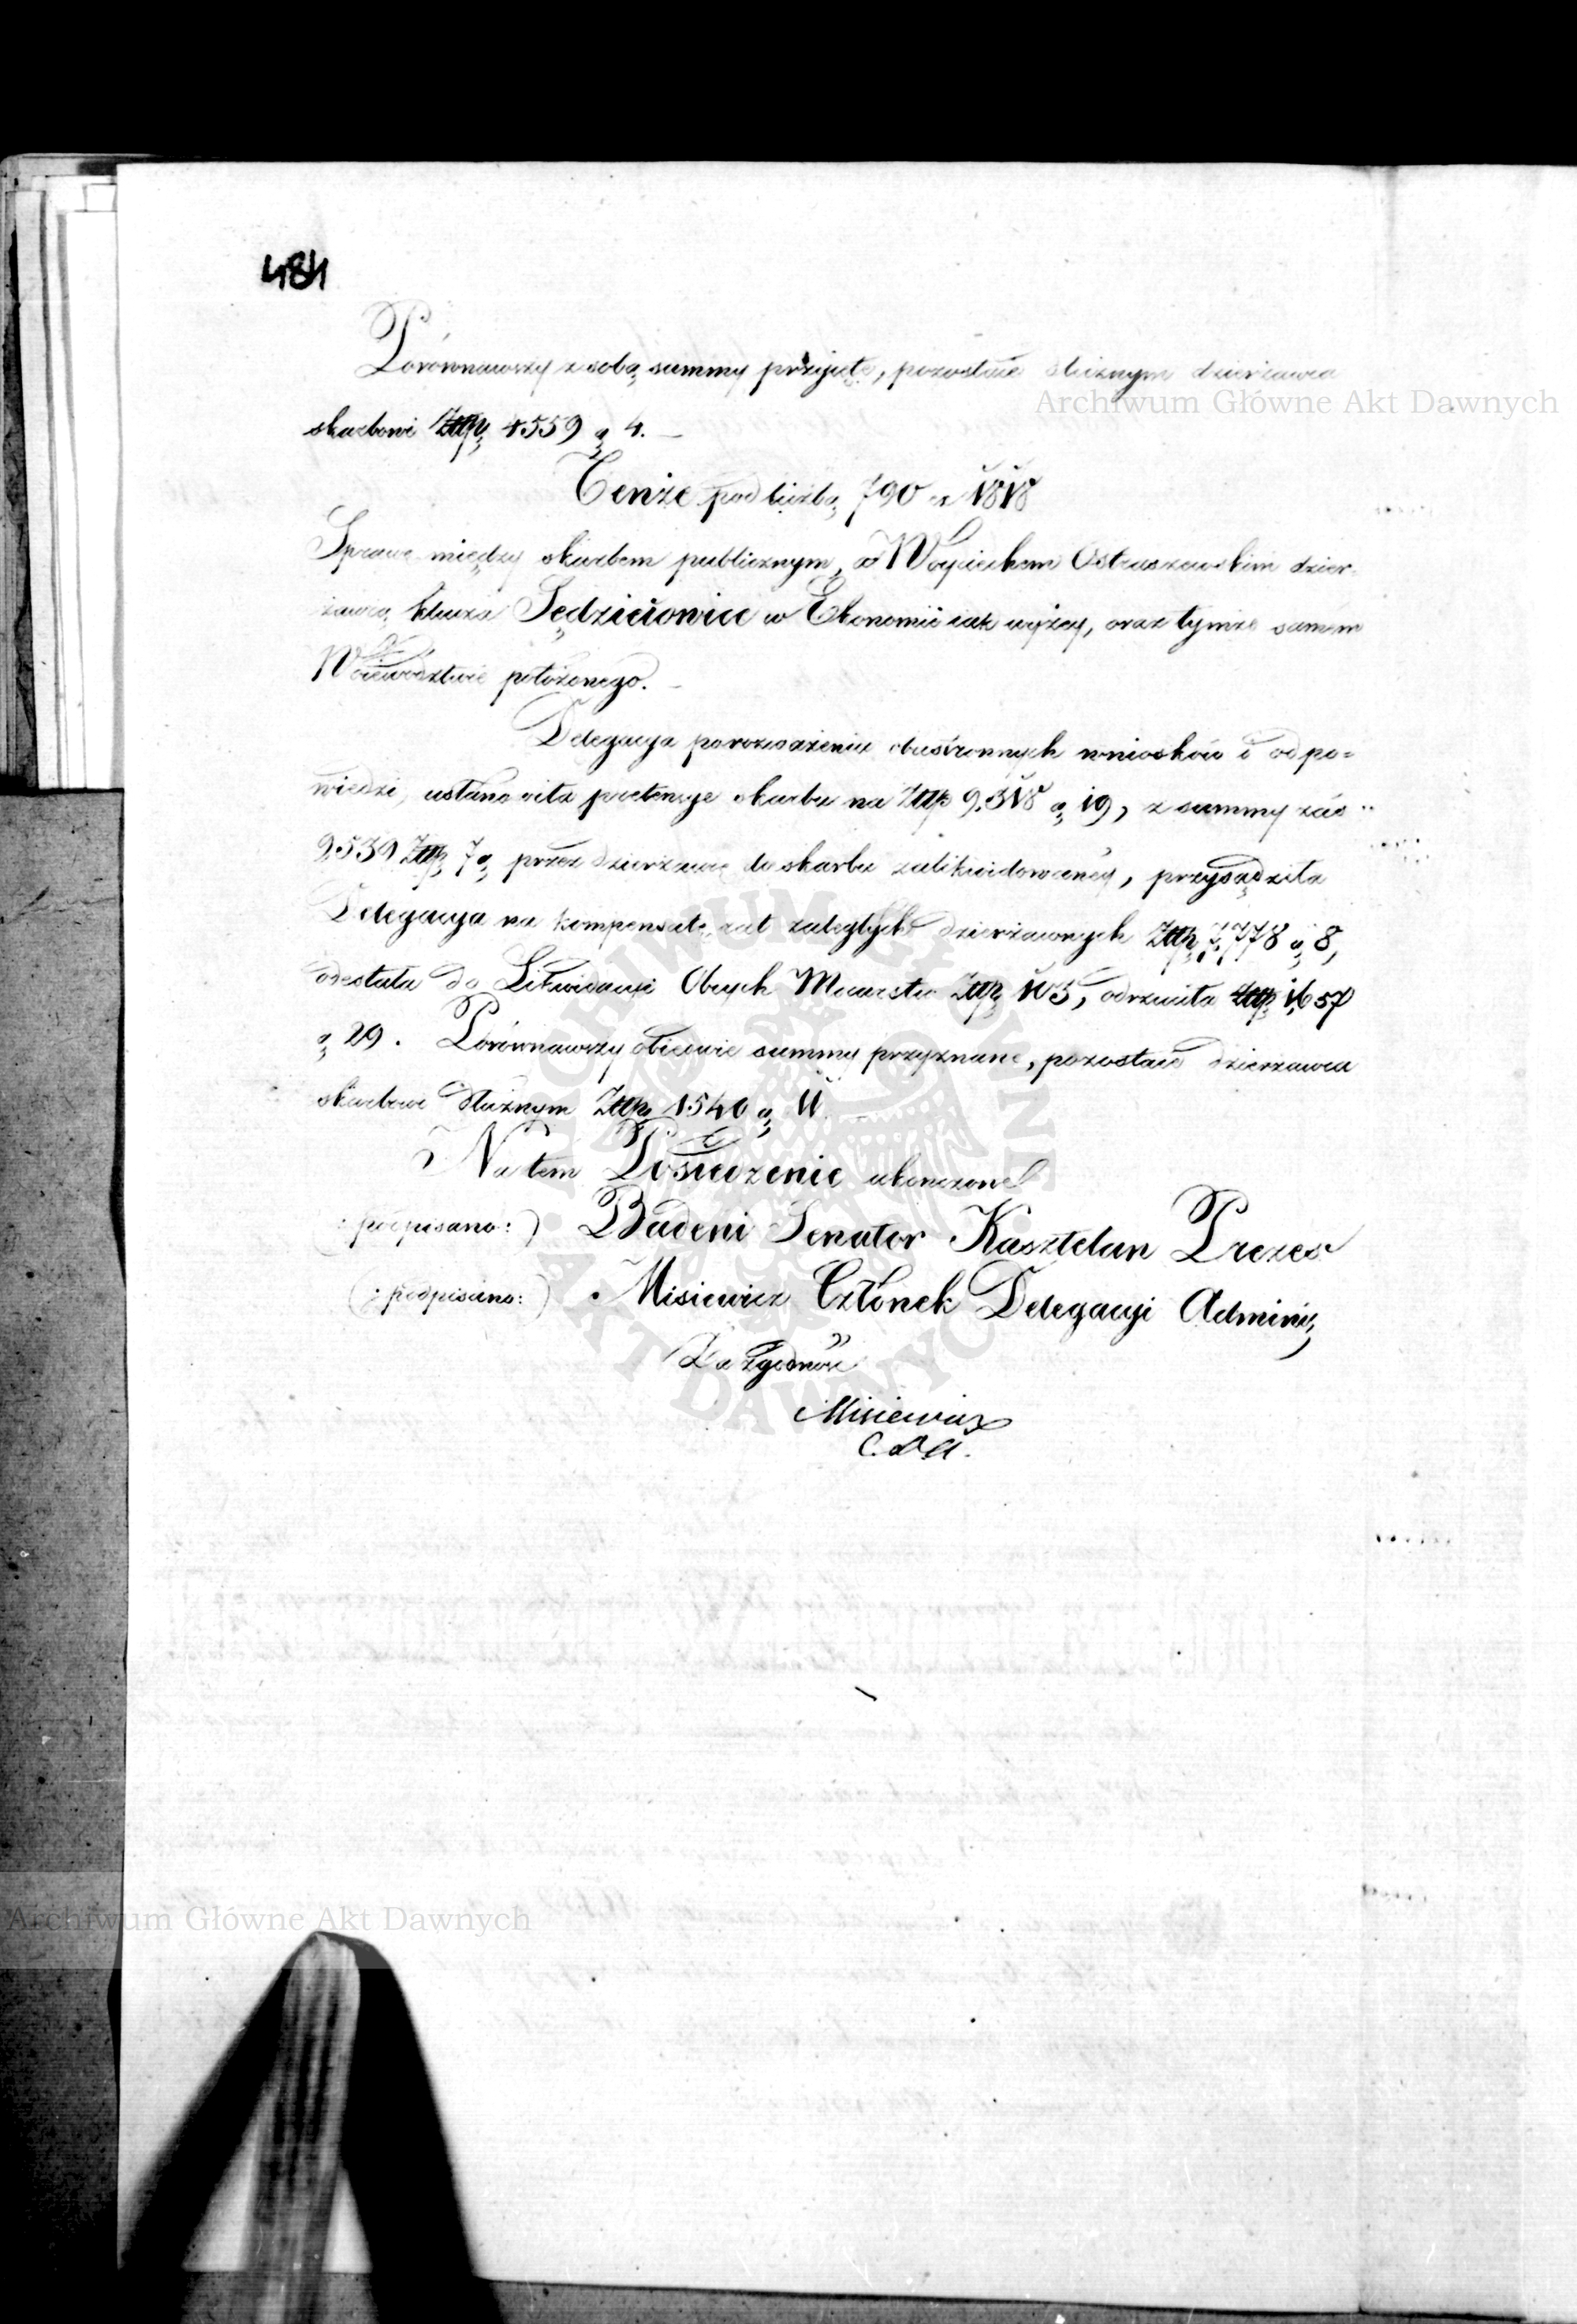 484
Porównawszy z sobą summy przyięte, pozostaie dłużnym dzierżawca
Archiwum Główne Akt Dawnych
skarbowi Złłp. 4559 g. 4. —
Tenże pod liczbą 790 z 1818
Sprawę między skarbem publicznym, a Woyciechem Ostraszewskim dzier-
żawcą klucza Sędzieiowice w Ekonomii iak wyżey, oraz tymże samem
Woiewództwie położonego. —
Delegacya po rozważeniu obustronnych wniosków i odpo=
wiedzi, ustanowiła pretensye skarbu na Złłp 9,318 g. 19, z summy zaś
9,539 Złłp. 7 g. przez dzierżawcę do skarbu zalikwidowaney, przysądziła
Delegacya na kompensatę rat zaległych dzierżawnych Złłp. 7,778 g. 8,
odesłała do Likwidacyi Obcych Mocarstw Złłp. 103, odrzuciła Złłp. 1,657
g. 29. Porównawszy obiedwie summy przyznane, pozostaie dzierżawca
skarbowi dłużnym Złłp. 1540 g. 11.
Na tem Posiedzenie ukonczone
(: podpisano :) Badeni Senator Kasztelan Prezes
(: podpisano :) Misiewicz Członek Delegacyi Adminis,
Za zgodność
Misiewicz
C. D. A.
Archiwum Główne Akt Dawnych
ARCHIWUM GŁÓWNE AKT DAWNYCH